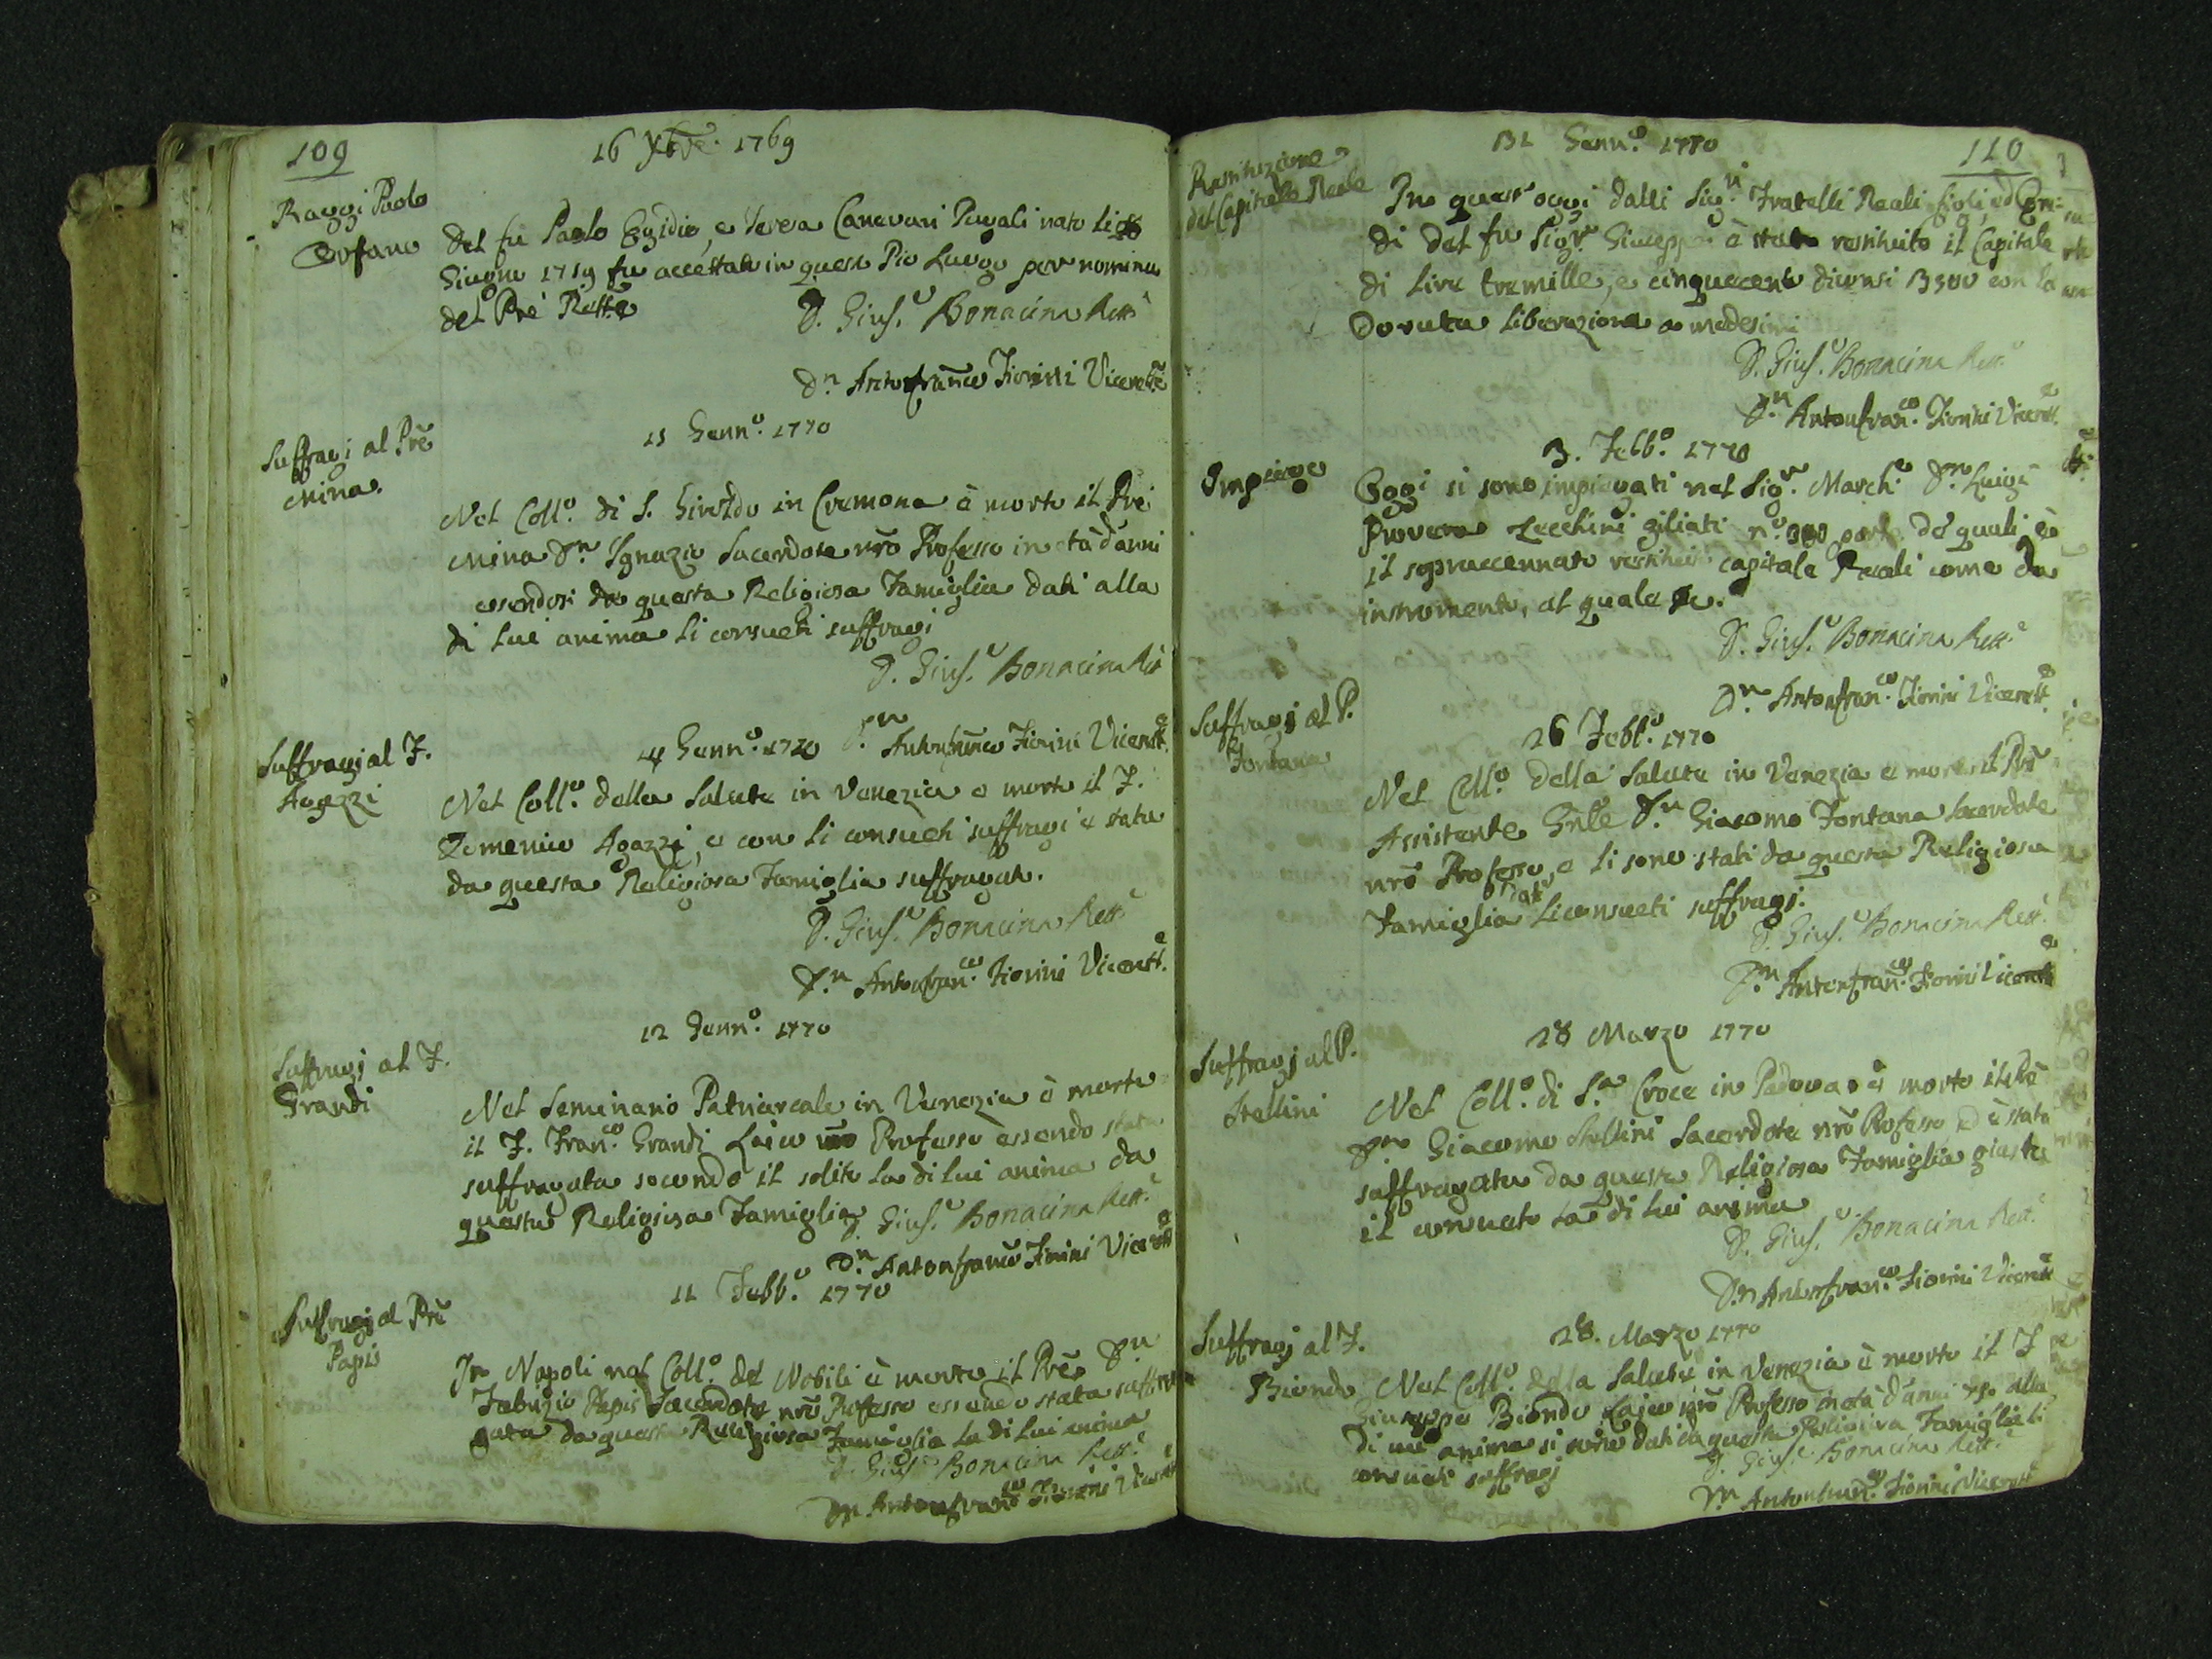 109
16 Xbre. 1769
Raggi Paolo
Orfano
Del fu Paolo Egidio, e Teresa Canevari Pugali nato li
Giugno 1759 fu accettato in questo Pio Luogo per nomina
del Pre Rettre
D. Gius.e Bonacina Rett.e
D.n Antonfranco Fiorini Vicerettre
Suffragi al Pre
Mina.
11 Genn.o 1770
Nel Coll.o di S. Giroldo in Cremona è morto il Pre
Mina D.n Ignazio Sacerdote nro Professo in età d'anni
essendosi da questa Religiosa Famiglia dati alla
di lui anima li consueti suffragi
D. Gius.e Bonacina Rett.e
D.n Antonfranco Fiorini Vicerett.e
Suffragj al F.
Agazzi
14 Genn.o 1770
Nel Coll.o della Salute in Venezia è morto il F.
Domenico Agazzi, e con li consueti suffragi è stato
da questa Religiosa Famiglia suffragato.
D. Gius.e Bonacina Rett.e
D.n Antonfran.co Fiorini Vicerett.e
Suffragj al F.
Grandi
12 Genn.o 1770
Nel Seminario Patriarcale in Venezia è morto
il F. Fran.co Grandi Laico nro Professo essendo stata
suffragata secondo il solito la di lui anima da
questa Religiosa Famiglia
D. Gius.e Bonacina Rett.e
D.n Antonfranco Fiorini Vicerett.e
Suffragj al Pre
Papis
11 Febb.o 1770
In Napoli nel Coll.o de Nobili è morto il Pre D.n
Fabrizio Papis Sacerdote nro Professo essendo stata suffra
gata da questa Religiosa Famiglia la di lui anima
D. Gius.e Bonacina Rett.e
D.n Antonfran.co Fiorini Vicerett.e
110
31 Genn.o 1770
Restituzione
del Capitale Reale
In quest'oggi dalli Sig.ri Fratelli Reali figli, ed Ere=
di del fu Sig.r Giuseppe è stato restituito il Capitale
di Lire tremille, e cinquecento dicensi 3500 con la
dovuta liberazione a medesimi
D. Gius.e Bonacina Rett.e
D.n Antonfran.co Fiorini Vicerett.e
Impiego
3. Febb.o 1770
Oggi si sono impiegati nel Sig.r March.e D.n Luigi
Provera Zecchini giliati n.o parte de quali è
il sopraccennato restituito capitale Reali come da
instromento, al quale
D. Gius.e Bonacina Rett.e
D.n Antonfran.co Fiorini Vicerett.e
Suffragj al P.
Fontana
26 Febb.o 1770
Nel Coll.o della Salute in Venezia è morto il Pre
Assistente Gnle D.n Giacomo Fontana Sacerdote
nro Professo, e li sono stati da questa Religiosa
Famiglia dati li consueti suffragj.
D. Gius.e Bonacina Rett.e
D.n Antonfran.co Fiorini Vicerett.e
Suffragj al P.
Stellini
28 Marzo 1770
Nel Coll.o di S.a Croce in Padova è morto il Pre
D.n Giacomo Stellini Sacerdote nro Professo ed è stata
suffragata da questa Religiosa Famiglia giusta
il consueto la di lui anima
D. Gius.e Bonacina Rett.e
D.n Antonfran.co Fiorini Vicerett.e
Suffragj al F.
Biondo
28. Marzo 1770
Nel Coll.o della Salute in Venezia è morto il F
Giuseppe Biondo Laico nro Professo in età d'anni alla
di cui anima si sono dati da questa Religiosa Famiglia li
consueti suffragj
D. Gius.e Bonacina Rett.e
D.n Antonfran.co Fiorini Vicerett.e